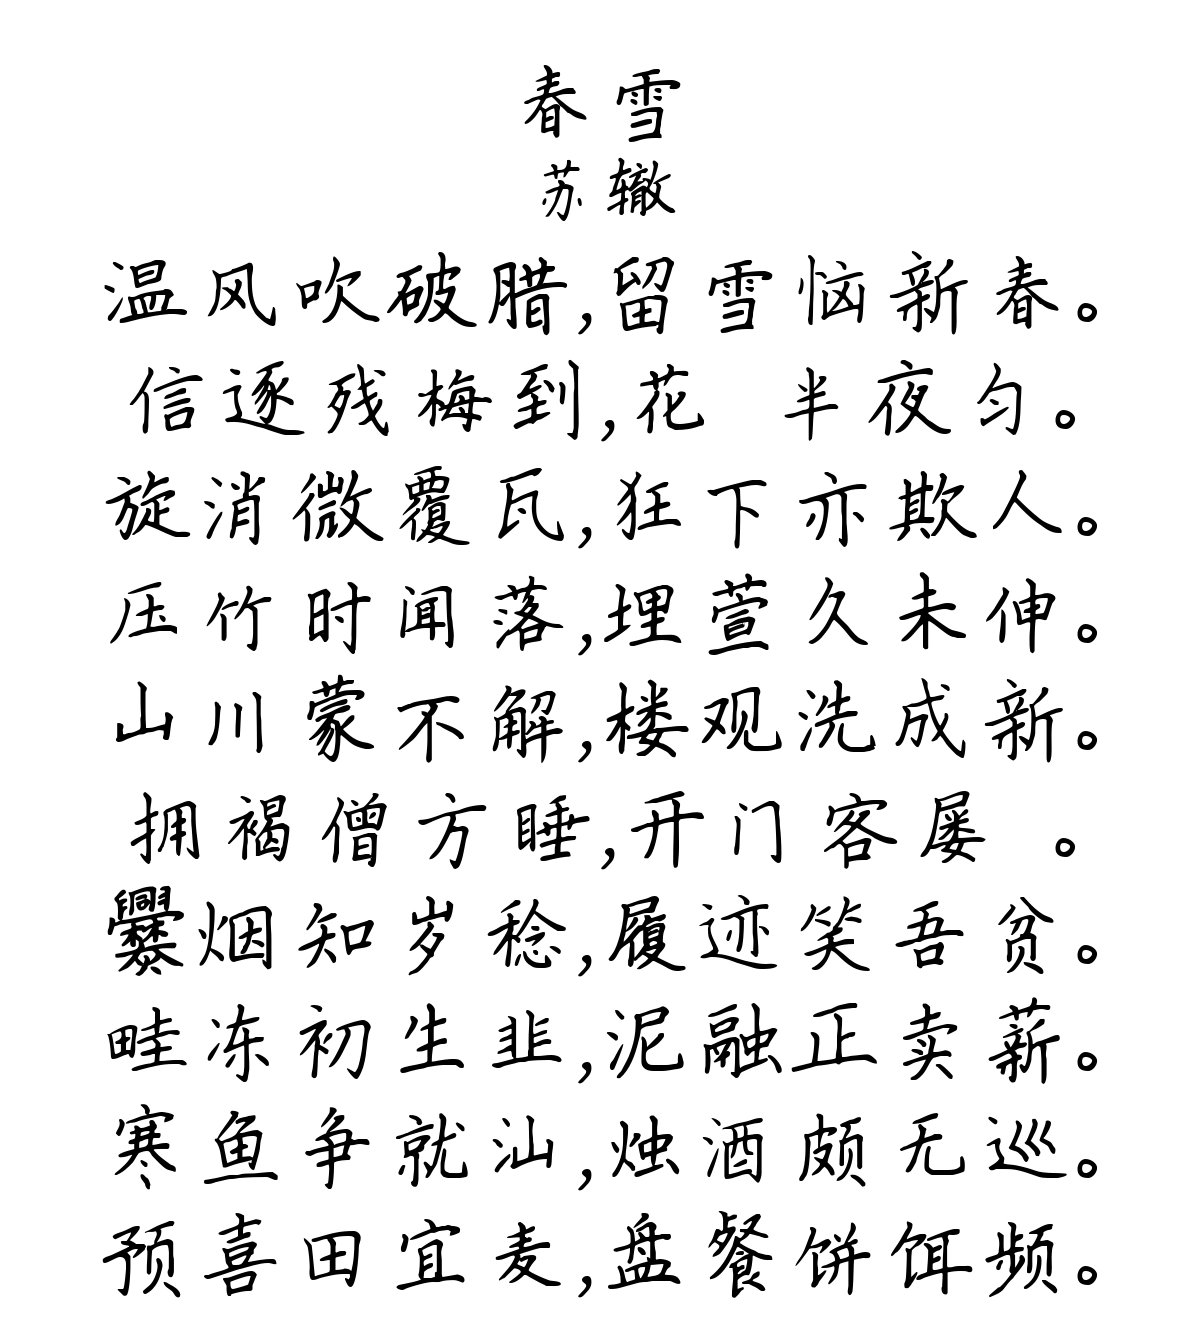 春雪
苏辙
温风吹破腊,留雪恼新春。
信逐残梅到,花 半夜匀。
旋消微覆瓦,狂下亦欺人。
压竹时闻落,埋萱久未伸。
山川蒙不解,楼观洗成新。
拥褐僧方睡,开门客屡 。
爨烟知岁稔,履迹笑吾贫。
畦冻初生韭,泥融正卖薪。
寒鱼争就汕,烛酒颇无巡。
预喜田宜麦,盘餐饼饵频。